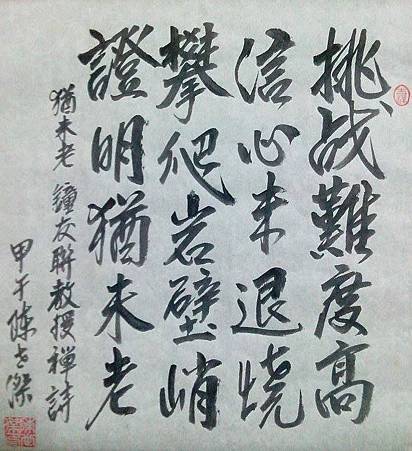 挑战難度高
信心未退烧
攀爬岩壁峭
證明猶未老
猶未老 鐘友聯教授禪詩
甲午陳